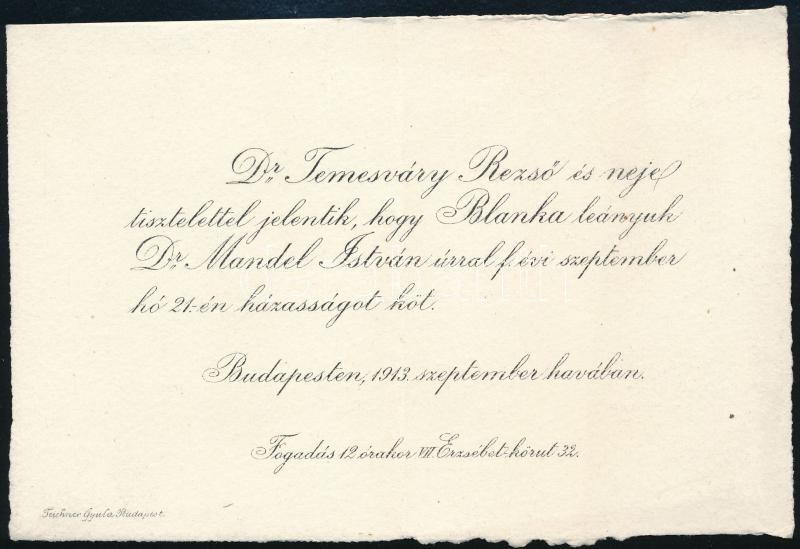 Dr Temesváry Rezső és neje
tisztelettel jelentik, hogy Blanka leányuk
Dr Mandel István úrral f. évi szeptember
hó 21-én házasságot köt.
Budapesten, 1913. szeptember havában.
Fogadás 12 órakor VII Erzsébet-körut 32.
Gyula, Budapest.